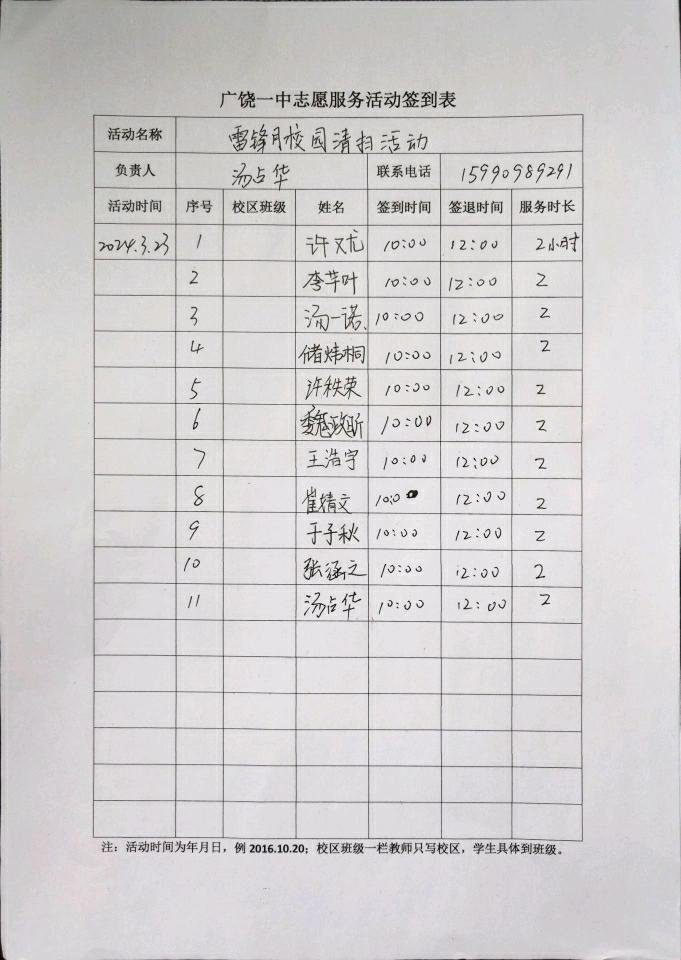 广饶一中志愿服务活动签到表
活动名称 雷锋月校园清扫活动
负责人 汤占华 联系电话 15990989291
活动时间 序号 校区班级 姓名 签到时间 签退时间 服务时长
2024.3.23 1 许又尤 10:00 12:00 2小时
2 李芊叶 10:00 12:00 2
3 汤一诺、 10:00 12:00 2
4 储炜桐 10:00 12:00 2
5 许秩荣 10:00 12:00 2
6 魏政昕 10:00 12:00 2
7 王浩宇 10:00 12:00 2
8 崔倩文 10:0 12:00 2
9 于子秋 10:00 12:00 2
10 张涵之 10:00 12:00 2
11 汤占华 10:00 12:00 2
注：活动时间为年月日，例 2016.10.20；校区班级一栏教师只写校区，学生具体到班级。